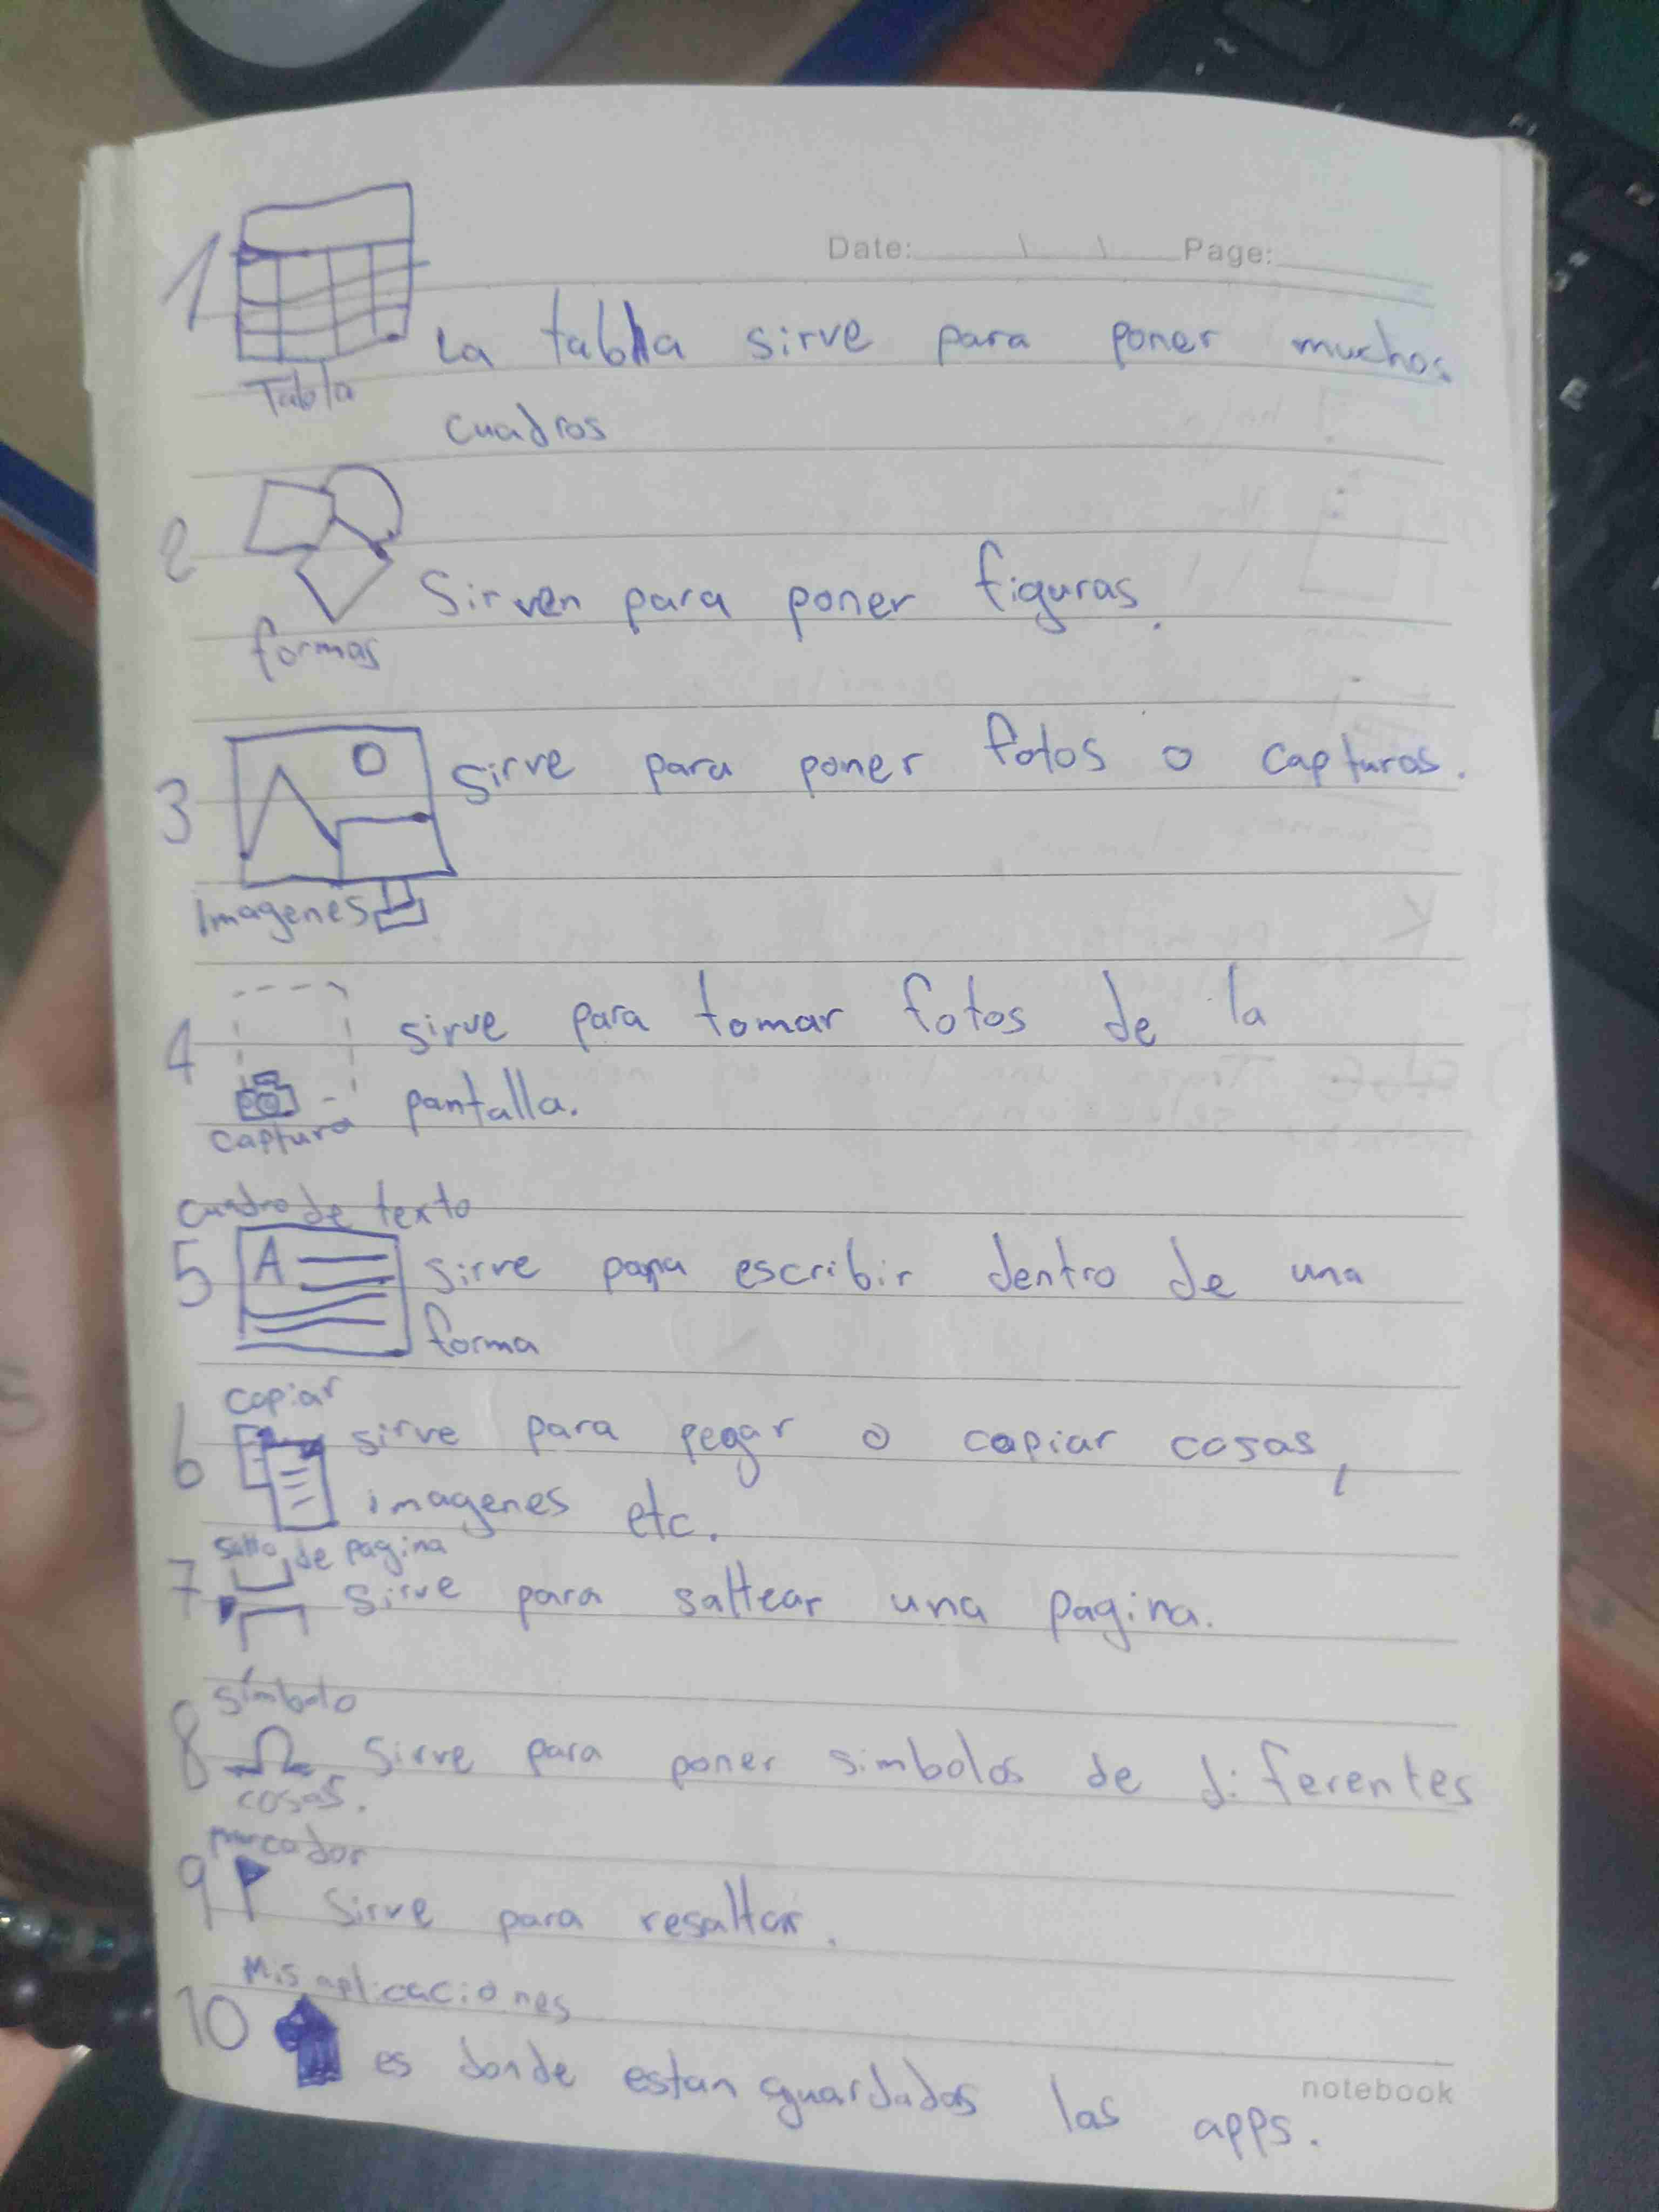 Date: Page:
1
La tabla sirve para poner muchos
Tabla
cuadros
2
Sirven para poner figuras.
formas
3 sirve para poner fotos o capturas.
Imagenes
4 sirve para tomar fotos de la
pantalla.
captura
cuadro de texto
5 A sirve para escribir dentro de una
forma
copiar
6 sirve para pegar o copiar cosas,
imagenes etc.
salto de pagina
7 Sirve para saltear una pagina.
símbolo
8 Ω Sirve para poner simbolos de diferentes
cosas.
marcador
9 Sirve para resaltar.
Mis aplicaciones
10 es donde estan guardadas las apps.
notebook